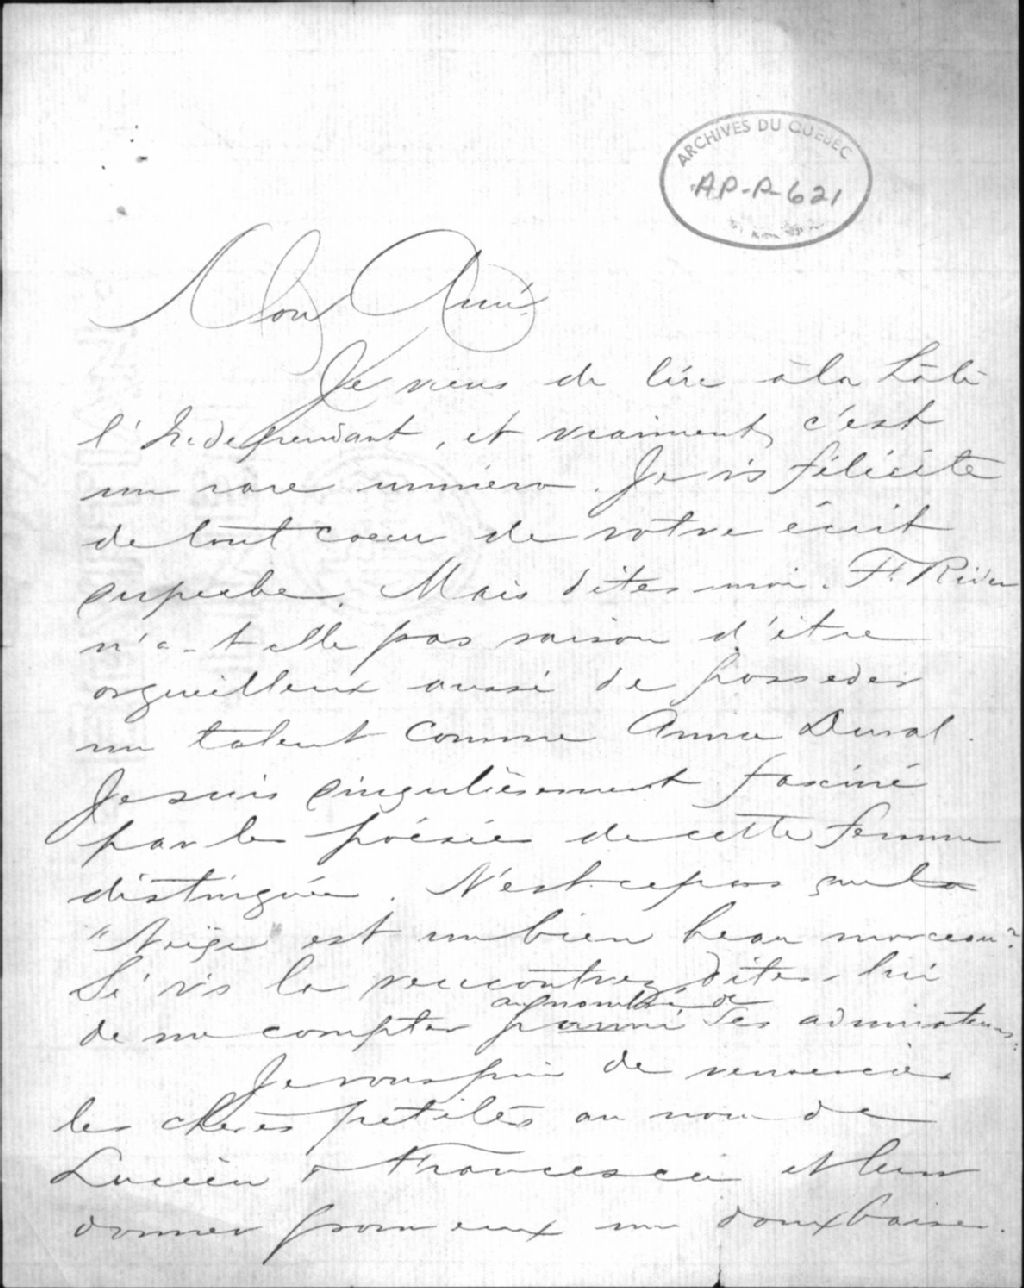 ARCHIVES DU QUÉBEC
AP-P-621
Mon Ami
Je viens de lire à la hâte
l'Independant, et vraiment, c'est
un rare numéro. Je vs félicite
de tout coeur de votre écrit
superbe. Mais dites moi. Fl River
n'a-t-elle pas raison d'être
orgueilleux aussi de posseder
un talent comme Anna Duval.
Je suis singulièrement fasciné
par les poésies de cette femme
distinguée. N'est-ce pas que la
"Neige" est un bien beau morceau?
Si vs la rencontrez, dites-lui
au nombre de
de me compter parmi ses admirateurs.
Je vous prie de remercier
les chères petites au nom de
Lucien & Francesca et leur
donner pour eux un doux baiser.